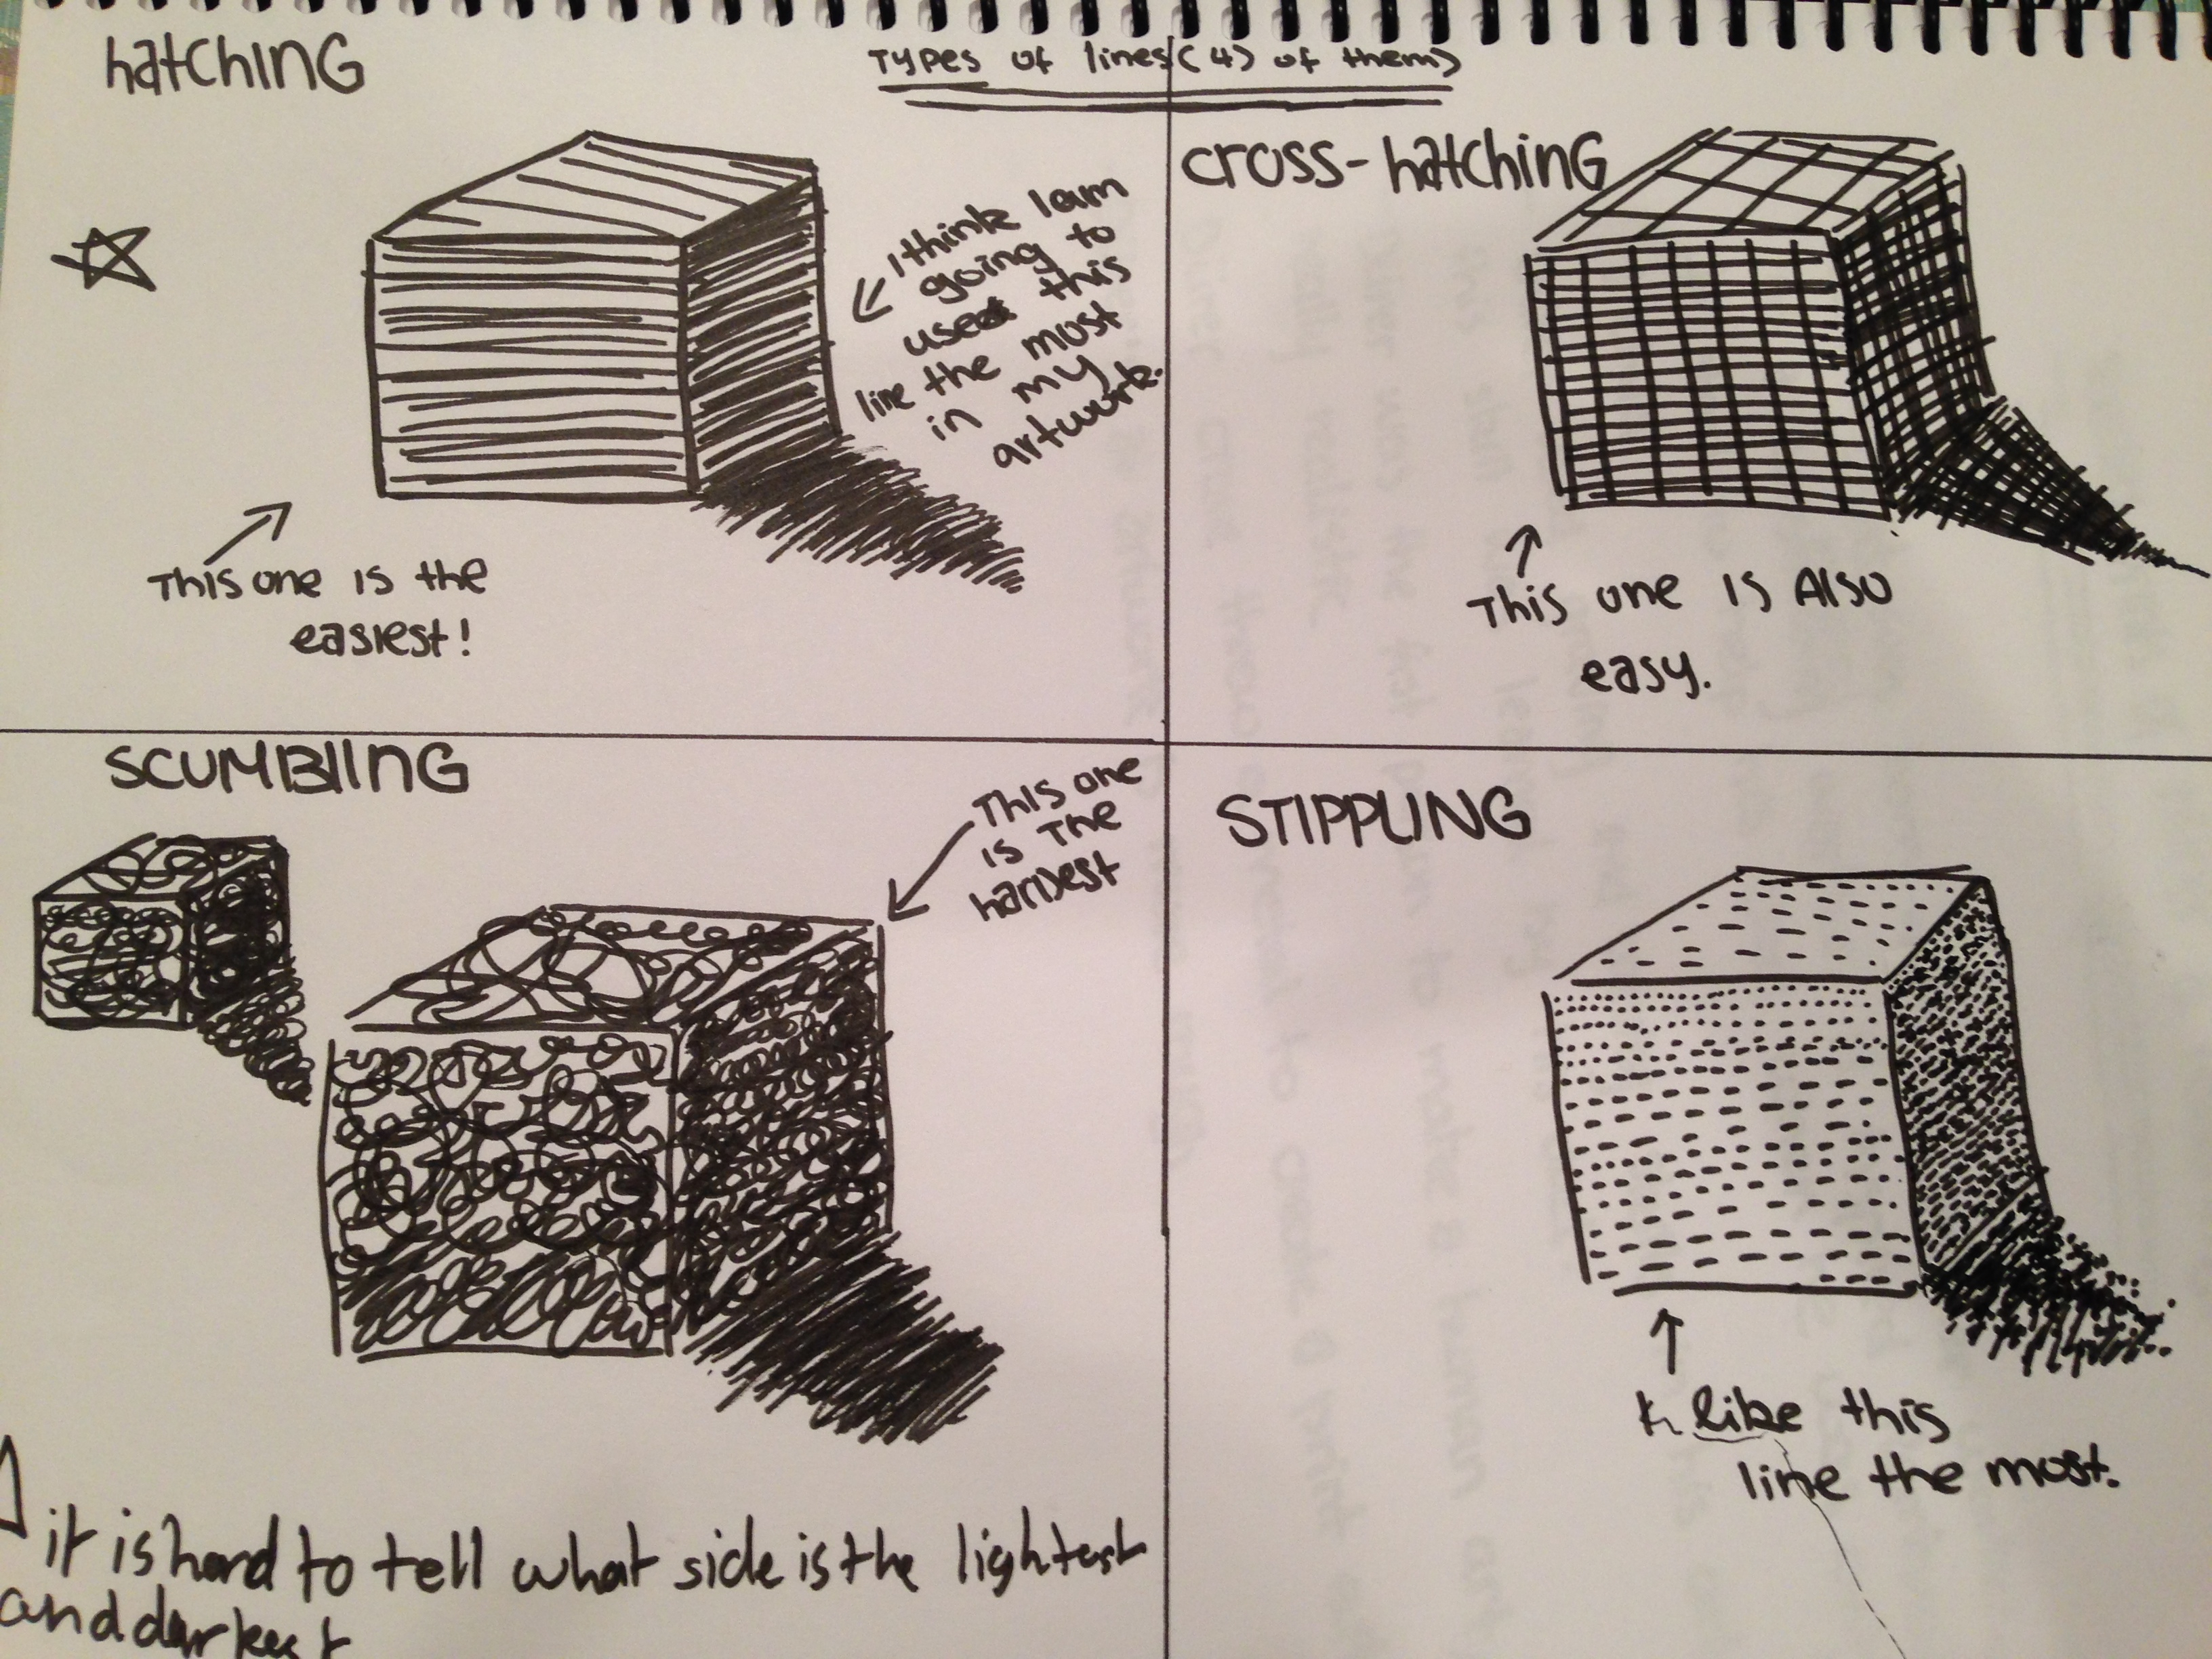 Types of lines (4) of them)
hatching
I think I am
going to
used this
line the most
in my
artwork.
This one is the
easiest!
cross-hatching
This one is Also
easy.
SCUMBlING
This one
is The
hardest
it is hard to tell what side is the lightest
and darkest
STIPPLING
like this
line the most.